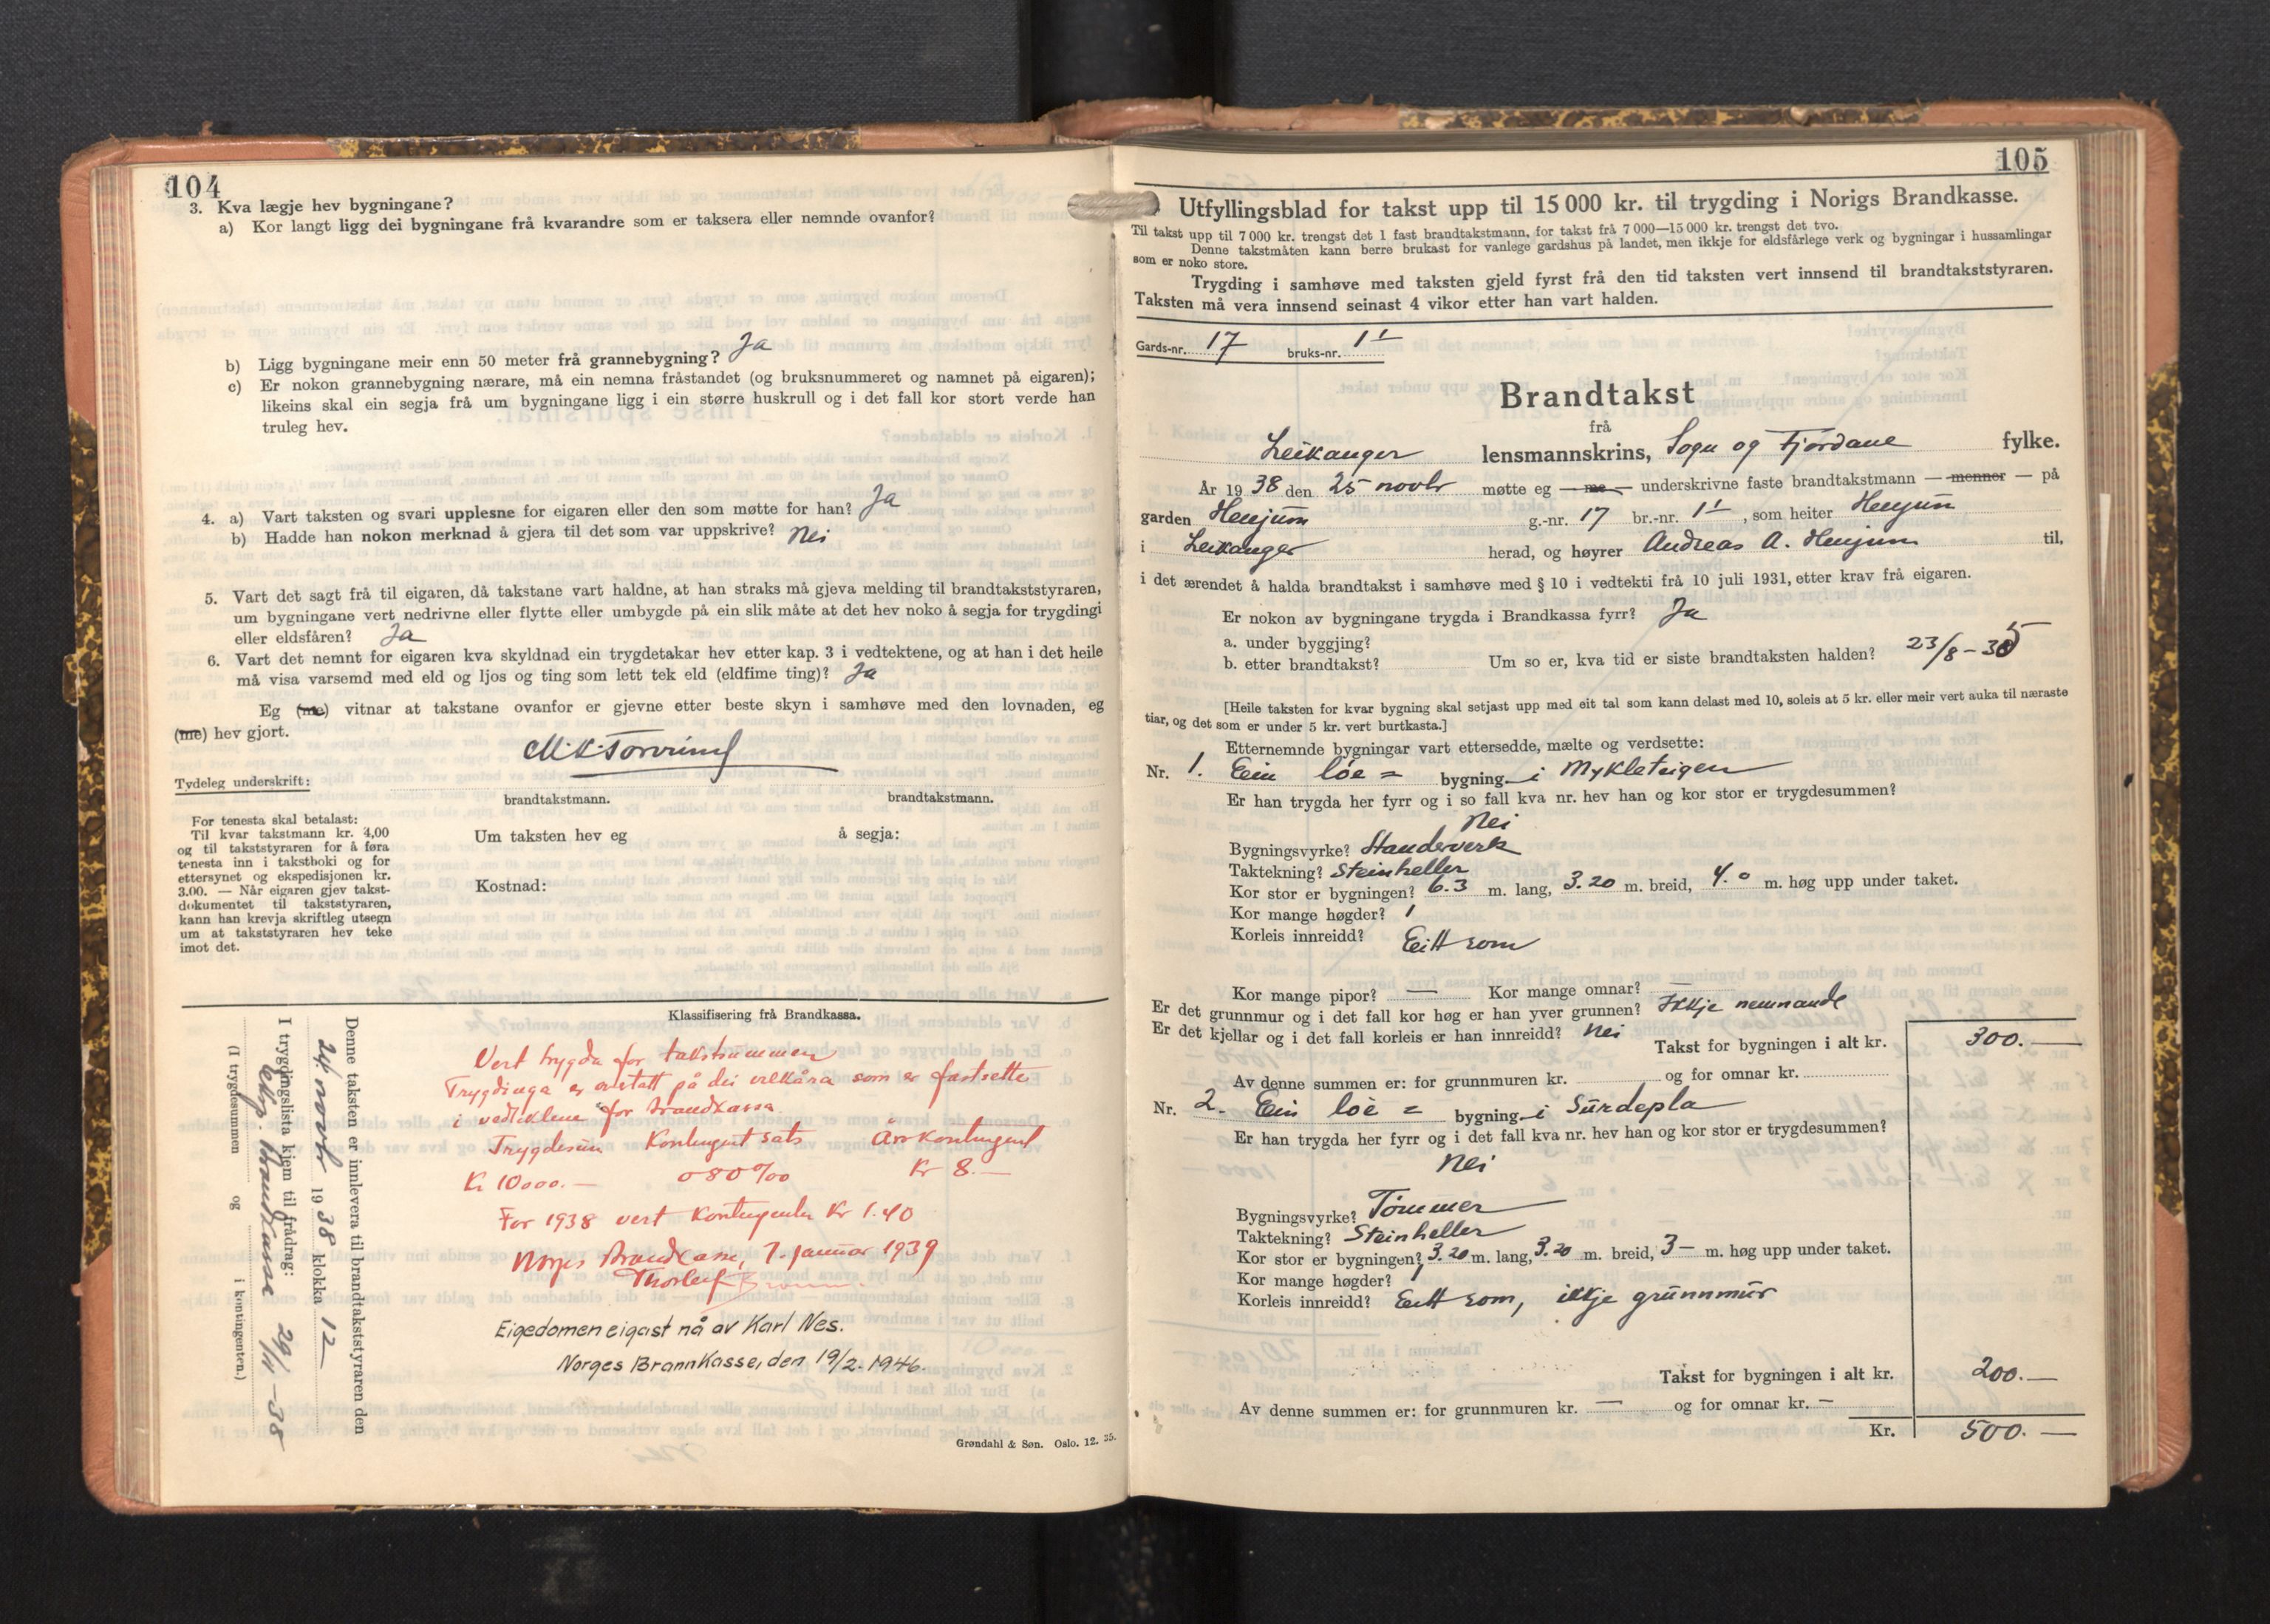 104
3. Kva lægje hev bygningane?
a) Kor langt ligg dei bygningane frå kvarandre som er taksera eller nemnde ovanfor?
b) Ligg bygningane meir enn 50 meter frå grannebygning? Ja
c) Er nokon grannebygning nærare, må ein nemna fråstandet (og bruksnummeret og namnet på eigaren);
likeins skal ein segja frå um bygningane ligg i ein større huskrull og i det fall kor stort verde han
truleg hev.
4. a) Vart taksten og svari upplesne for eigaren eller den som møtte for han? Ja
b) Hadde han nokon merknad å gjera til det som var uppskrive? Nei
5. Vart det sagt frå til eigaren, då takstane vart haldne, at han straks må gjeva melding til brandtakststyraren,
um bygningane vert nedrivne eller flytte eller umbygde på ein slik måte at det hev noko å segja for trygdingi
eller eldsfåren? Ja
6. Vart det nemnt for eigaren kva skyldnad ein trygdetakar hev etter kap. 3 i vedtektene, og at han i det heile
må visa varsemd med eld og ljos og ting som lett tek eld (eldfime ting)? Ja
Eg (me) vitnar at takstane ovanfor er gjevne etter beste skyn i samhøve med den lovnaden, eg
(me) hev gjort.
M.K. Torvund
Tydeleg underskrift:
brandtakstmann. brandtakstmann.
For tenesta skal betalast:
Til kvar takstmann kr. 4,00
og til takststyraren for å føra
tenesta inn i takstboki og for
ettersynet og ekspedisjonen kr.
3.00. — Når eigaren gjev takst-
dokumentet til takststyraren,
kann han krevja skriftleg utsegn
um at takststyraren hev teke
imot det.
Um taksten hev eg å segja:
Kostnad:
Klassifisering frå Brandkassa.
Denne taksten er innlevera til brandtakststyraren den
24 novbr 1938 klokka 12
I trygdingslista kjem til frådrag:
eksp. Brandkasse 29/11-38
(I trygdesummen og i kontingenten.)
Vert trygda for takstsummen
Trygdinga er avstatt på dei vilkåra som er fastsette
i vedtektene for Brandkassa.
Trygdesum Kontingent sats Årskontingent
Kr 10000.— 080 ‰ Kr 8.—
For 1938 vert kontingenten Kr 1.40
Norges Brandkasse, 7. januar 1939
Thorleif
Eigedomen eigast nå av Karl Nes.
Norges Brannkasse, den 19/2. 1946.
Grøndahl & Søn. Oslo. 12. 35.
105
Utfyllingsblad for takst upp til 15 000 kr. til trygding i Norigs Brandkasse.
Til takst upp til 7 000 kr. trengst det 1 fast brandtakstmann, for takst frå 7 000—15 000 kr. trengst det tvo.
Denne takstmåten kann berre brukast for vanlege gardshus på landet, men ikkje for eldsfårlege verk og bygningar i hussamlingar
som er noko store.
Trygding i samhøve med taksten gjeld fyrst frå den tid taksten vert innsend til brandtakststyraren.
Taksten må vera innsend seinast 4 vikor etter han vart halden.
Gards-nr. 17 bruks-nr. 1 1
Brandtakst
frå
Leikanger lensmannskrins, Sogn og Fjordane fylke.
År 1938 den 25 novbr møtte eg — me — underskrivne faste brandtakstmann — menner — på
garden Henjum g.-nr. 17 br.-nr. 1 1, som heiter Henjum
i Leikanger herad, og høyrer Andreas A. Henjum til,
i det ærendet å halda brandtakst i samhøve med § 10 i vedtekti frå 10 juli 1931, etter krav frå eigaren.
Er nokon av bygningane trygda i Brandkassa fyrr? Ja
a. under byggjing?
b. etter brandtakst? Um so er, kva tid er siste brandtaksten halden? 23/8-35
[Heile taksten for kvar bygning skal setjast upp med eit tal som kann delast med 10, soleis at 5 kr. eller meir vert auka til næraste
tiar, og det som er under 5 kr. vert burtkasta.]
Etternemnde bygningar vart ettersedde, mælte og verdsette:
Nr. 1. Ein löe = bygning i Mykleteigen
Er han trygda her fyrr og i so fall kva nr. hev han og kor stor er trygdesummen?
Nei
Bygningsvyrke? Standerverk
Taktekning? Steinheller
Kor stor er bygningen? 6.3 m. lang, 3.20 m. breid, 4.0 m. høg upp under taket.
Kor mange høgder? 1
Korleis innreidd? Eitt rom
Kor mange pipor? — Kor mange omnar? —
Er det grunnmur og i det fall kor høg er han yver grunnen? Ikkje nemnande
Er det kjellar og i det fall korleis er han innreidd? Nei
Takst for bygningen i alt kr. 300.—
Av denne summen er: for grunnmuren kr. og for omnar kr.
Nr. 2. Ein löe = bygning i Surdepla
Er han trygda her fyrr og i det fall kva nr. hev han og kor stor er trygdesummen?
Nei
Bygningsvyrke? Tömmer
Taktekning? Steinheller
Kor stor er bygningen? 3.20 m. lang, 3.20 m. breid, 3— m. høg upp under taket.
Kor mange høgder? 1
Korleis innreidd? Eitt rom, ikkje grunnmur
Takst for bygningen i alt kr. 200.—
Av denne summen er: for grunnmuren kr. — og for omnar kr. —
Kr. 500.—